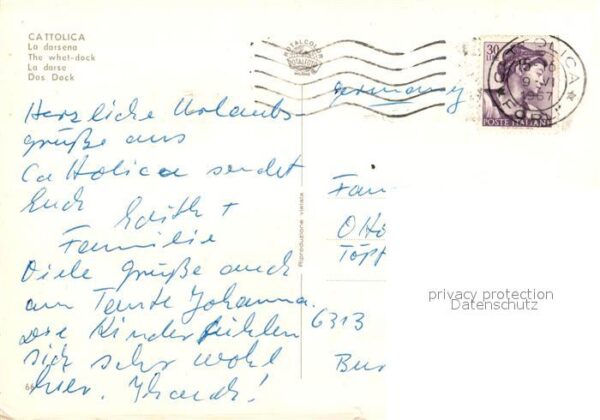 CATTOLICA
La darsena
The whet-dock
La darse
Das Dock
ROTALCOLOR
ROTALFOTO
30
LIRE
POSTE ITALIANE
CATTOLICA
germany
Herzliche Urlaubs-
grüße aus
Cattolica sendet
Euch Edith +
Familie
Viele Grüße auch
an Tante Johanna.
Die Kinder fühlen
sich sehr wohl
hier.
Riproduzione vietata
Fam
Otto
Töpf
6313
Bur
privacy protection
Datenschutz